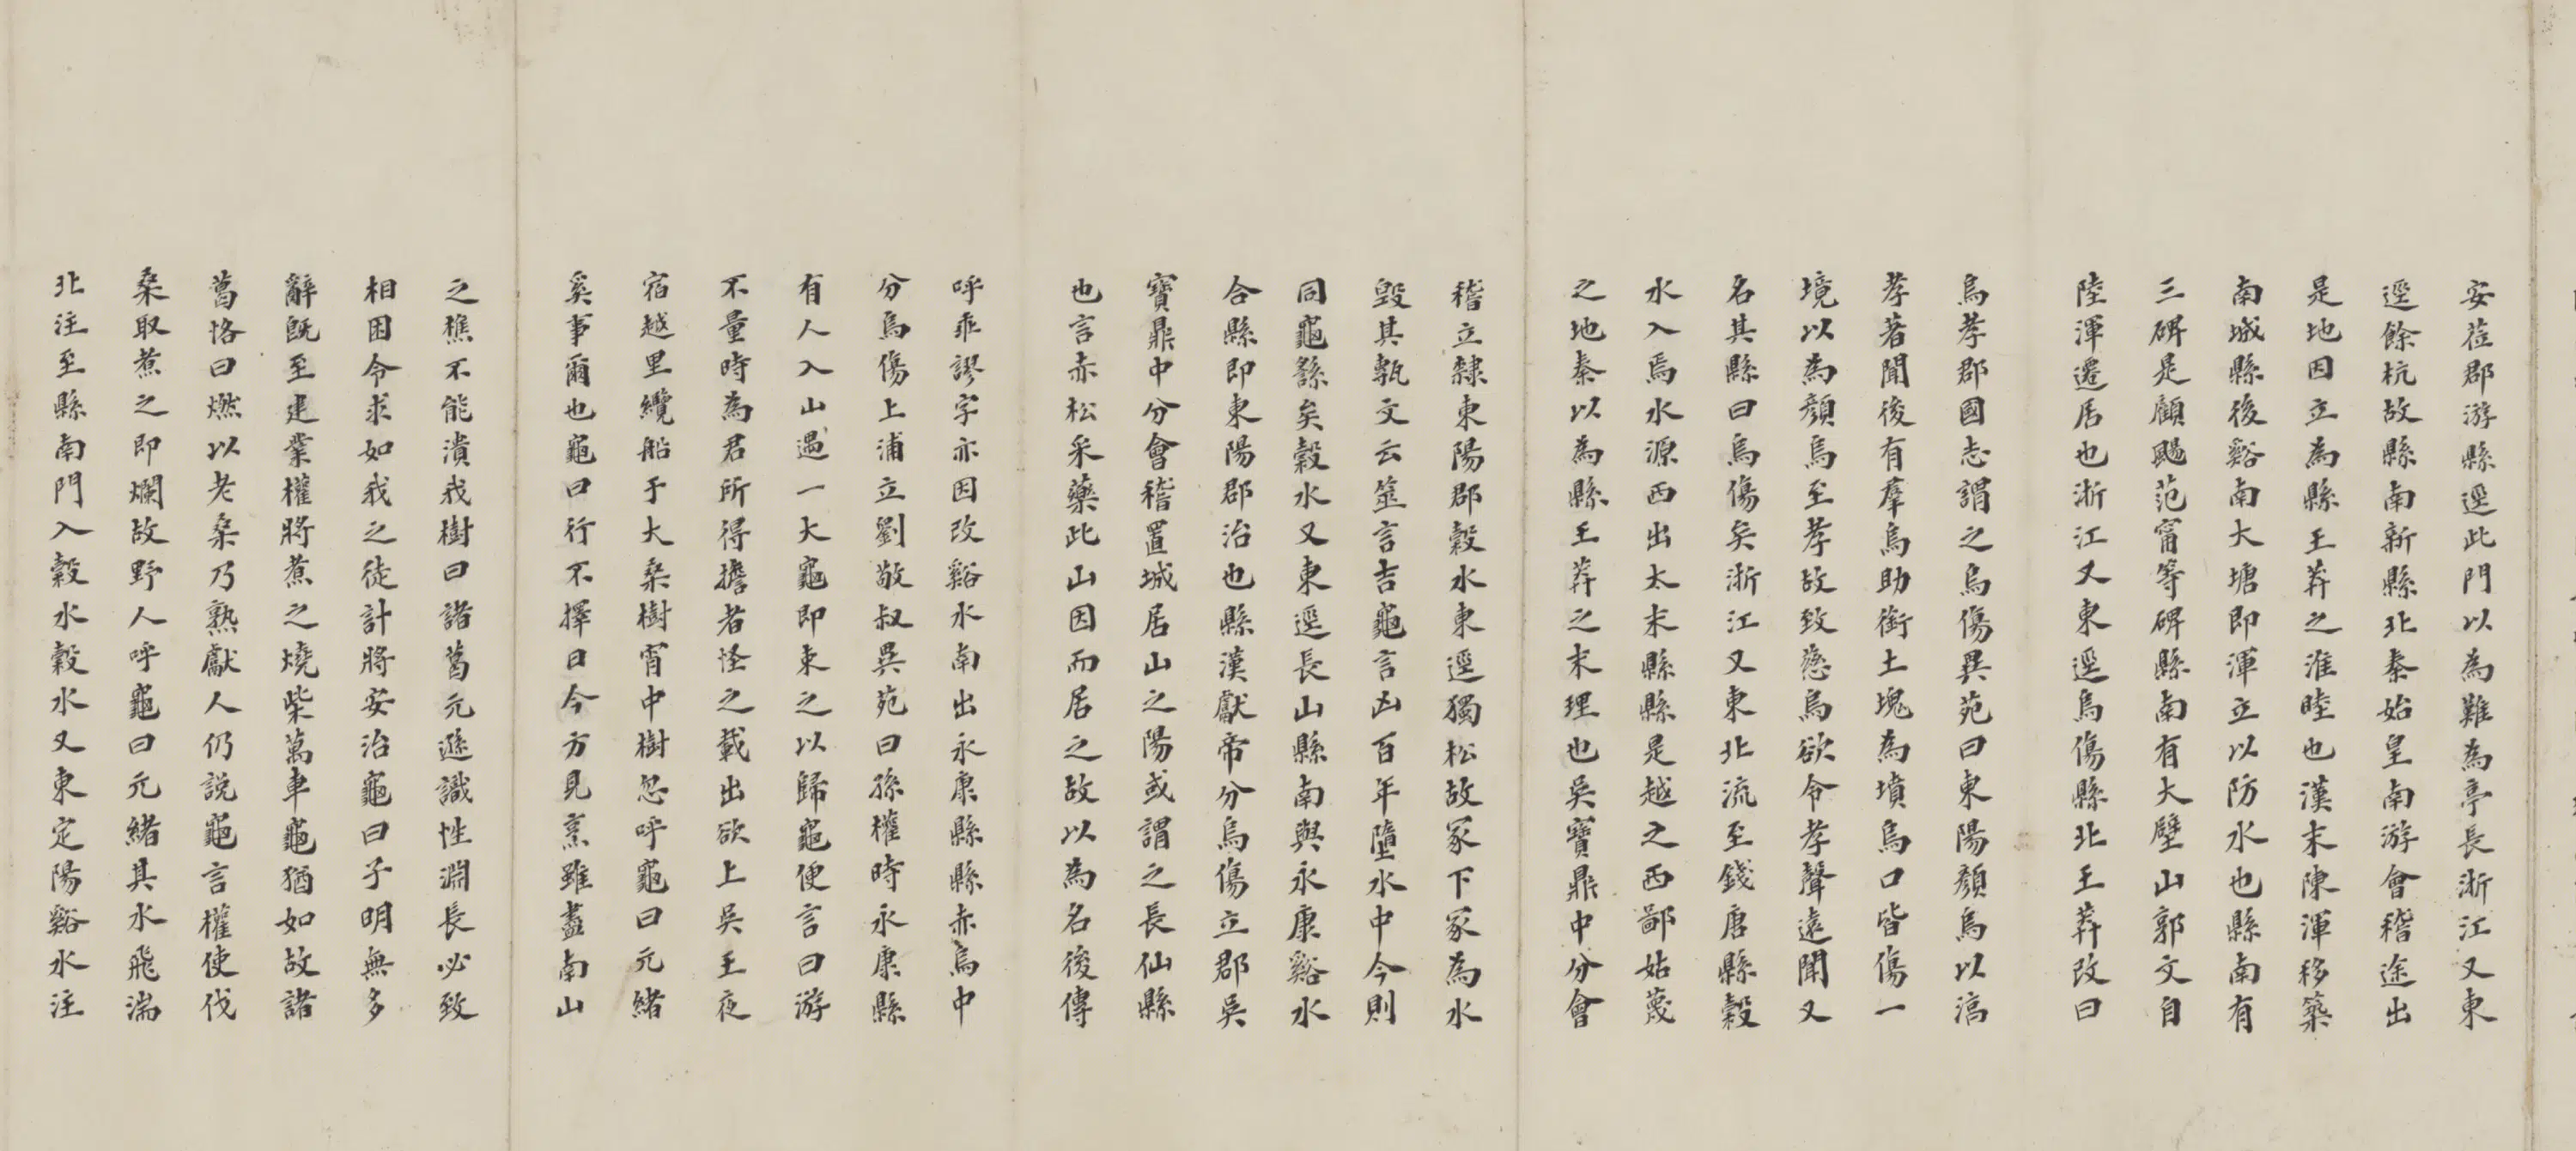 安莅郡游縣逕此門以為難為亭長浙江又東
逕餘杭故縣南新縣北秦始皇南游會稽途出
是地因立為縣王莽之淮睦也漢末陳渾移築
南城縣後谿南大塘即渾立以防水也縣南有
三碑是顧颺范甯等碑縣南有大壁山郭文自
陸渾遷居也浙江又東逕烏傷縣北王莽改曰
烏孝郡國志謂之烏傷異苑曰東陽顏烏以淳
孝著聞後有羣烏助銜土塊為墳烏口皆傷一
境以為顏烏至孝故致慈烏欲令孝聲遠聞又
名其縣曰烏傷矣浙江又東北流至錢唐縣穀
水入焉水源西出太末縣縣是越之西鄙姑蔑
之地秦以為縣王莽之末理也吳寶鼎中分會
稽立隸東陽郡穀水東逕獨松故冢下冢為水
毀其甎文云筮言吉龜言凶百年墮水中今則
同龜繇矣穀水又東逕長山縣南與永康谿水
合縣即東陽郡治也縣漢獻帝分烏傷立郡吳
寶鼎中分會稽置城居山之陽或謂之長仙縣
也言赤松采藥此山因而居之故以為名後傳
呼乖謬字亦因改谿水南出永康縣縣赤烏中
分烏傷上浦立劉敬叔異苑曰孫權時永康縣
有人入山遇一大龜即束之以歸龜便言曰游
不量時為君所得擔者怪之載出欲上吳王夜
宿越里纜船于大桑樹宵中樹忽呼龜曰元緒
奚事爾也龜曰行不擇日今方見烹雖盡南山
之樵不能潰我樹曰諸葛元遜識性淵長必致
相困令求如我之徒計將安治龜曰子明無多
辭既至建業權將煮之燒柴萬車龜猶如故諸
葛恪曰燃以老桑乃熟獻人仍說龜言權使伐
桑取煮之即爛故野人呼龜曰元緒其水飛湍
北注至縣南門入穀水穀水又東定陽谿水注